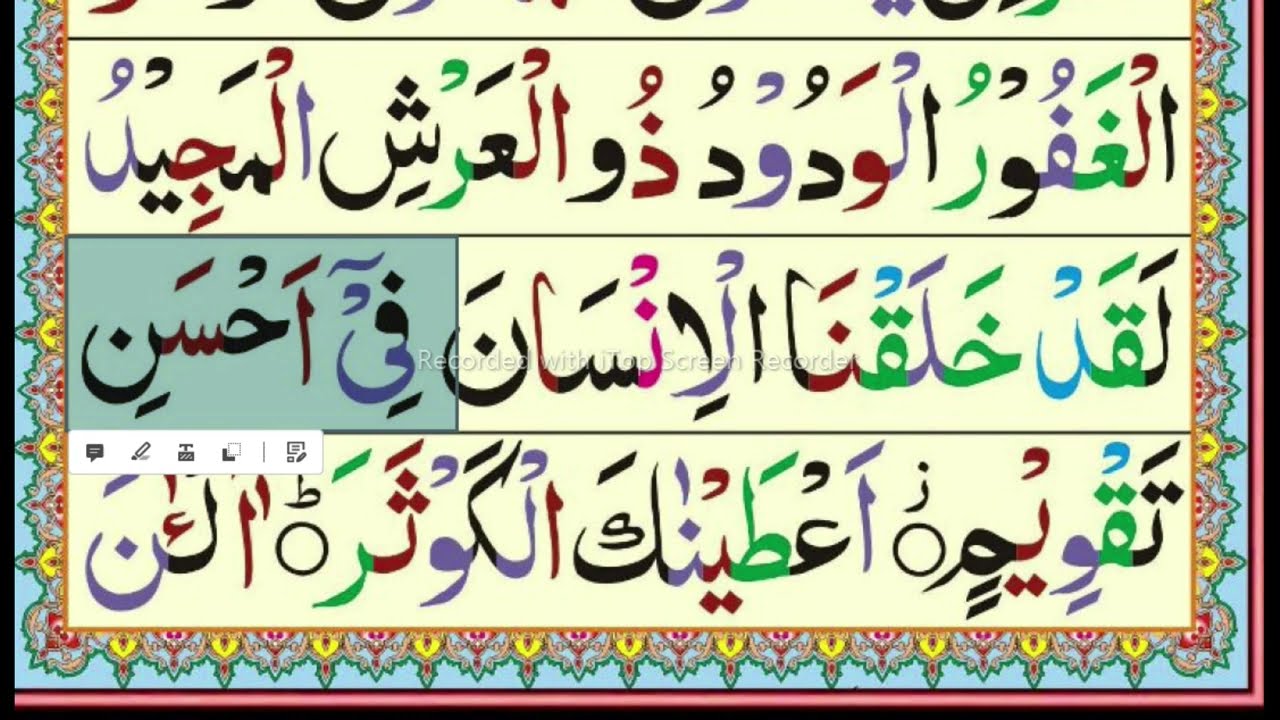 الْغَفُوْرُ الْوَدُوْدُ ذُو الْعَرْشِ الْمَجِيْدُ
لَقَدْ خَلَقْنَا الْاِنْسَانَ فِيْٓ اَحْسَنِ
Recorded with iTop Screen Recorder
تَقْوِيْمٍ ۟ز اَعْطَيْنٰكَ الْكَوْثَرَ ۟ؕ آٰلْـٰٔنَ